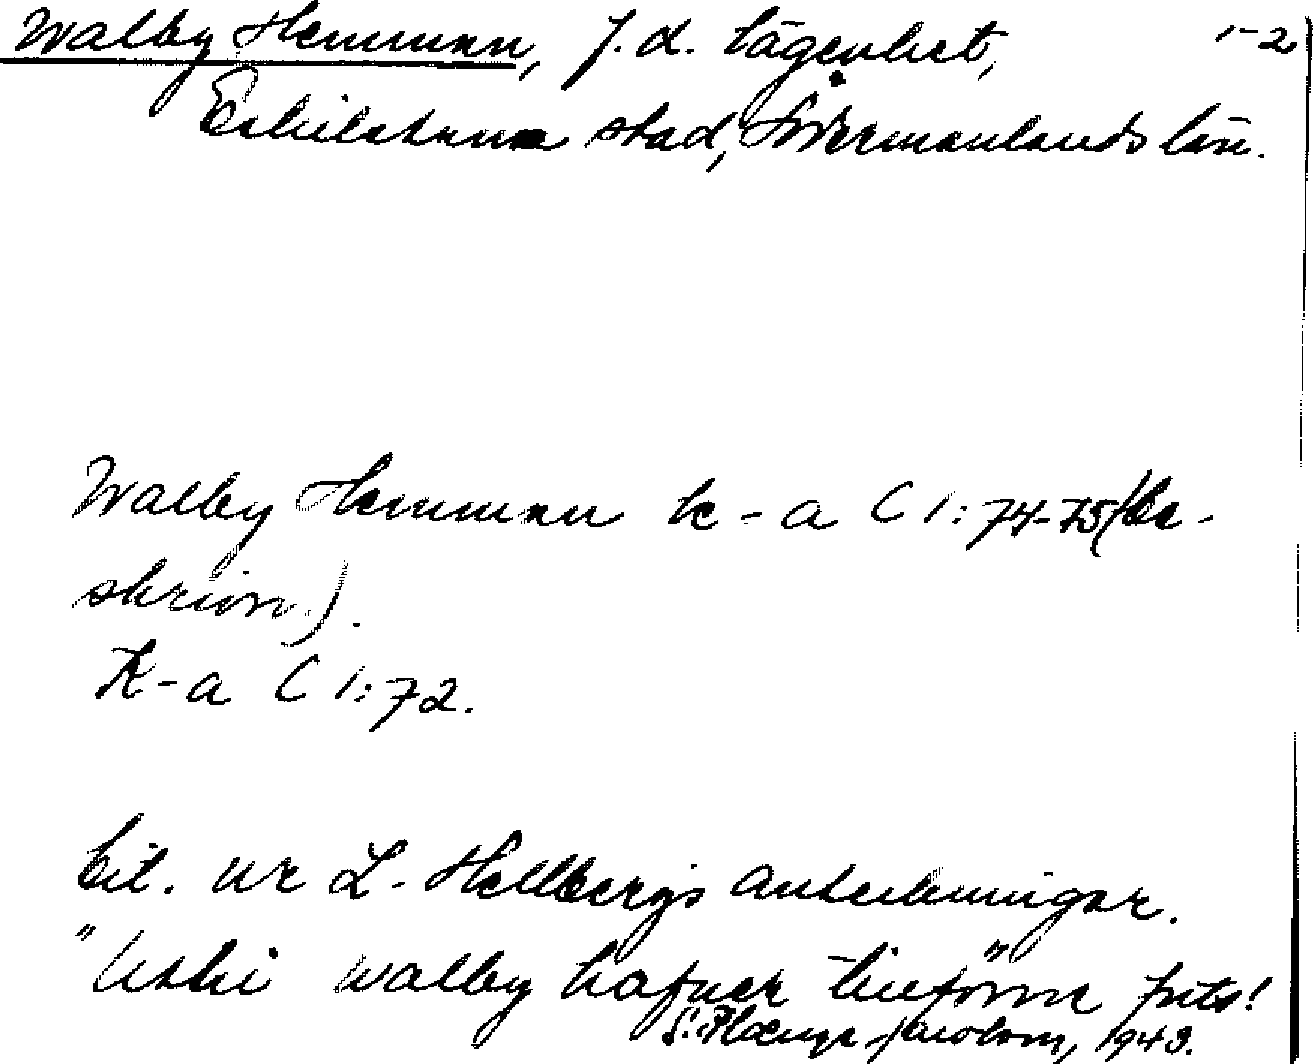 Walby Hemman, f.d. lägenhet, 1-2
Eskilstuna stad, Södermanlands län.
Walby Hemman k-a C 1:74-75 (be-
skrivn.).
K-a C 1:72.
Cit. ur L. Hellbergs anteckningar.
" walby hafuer tieförne
Jacobson, 1943.